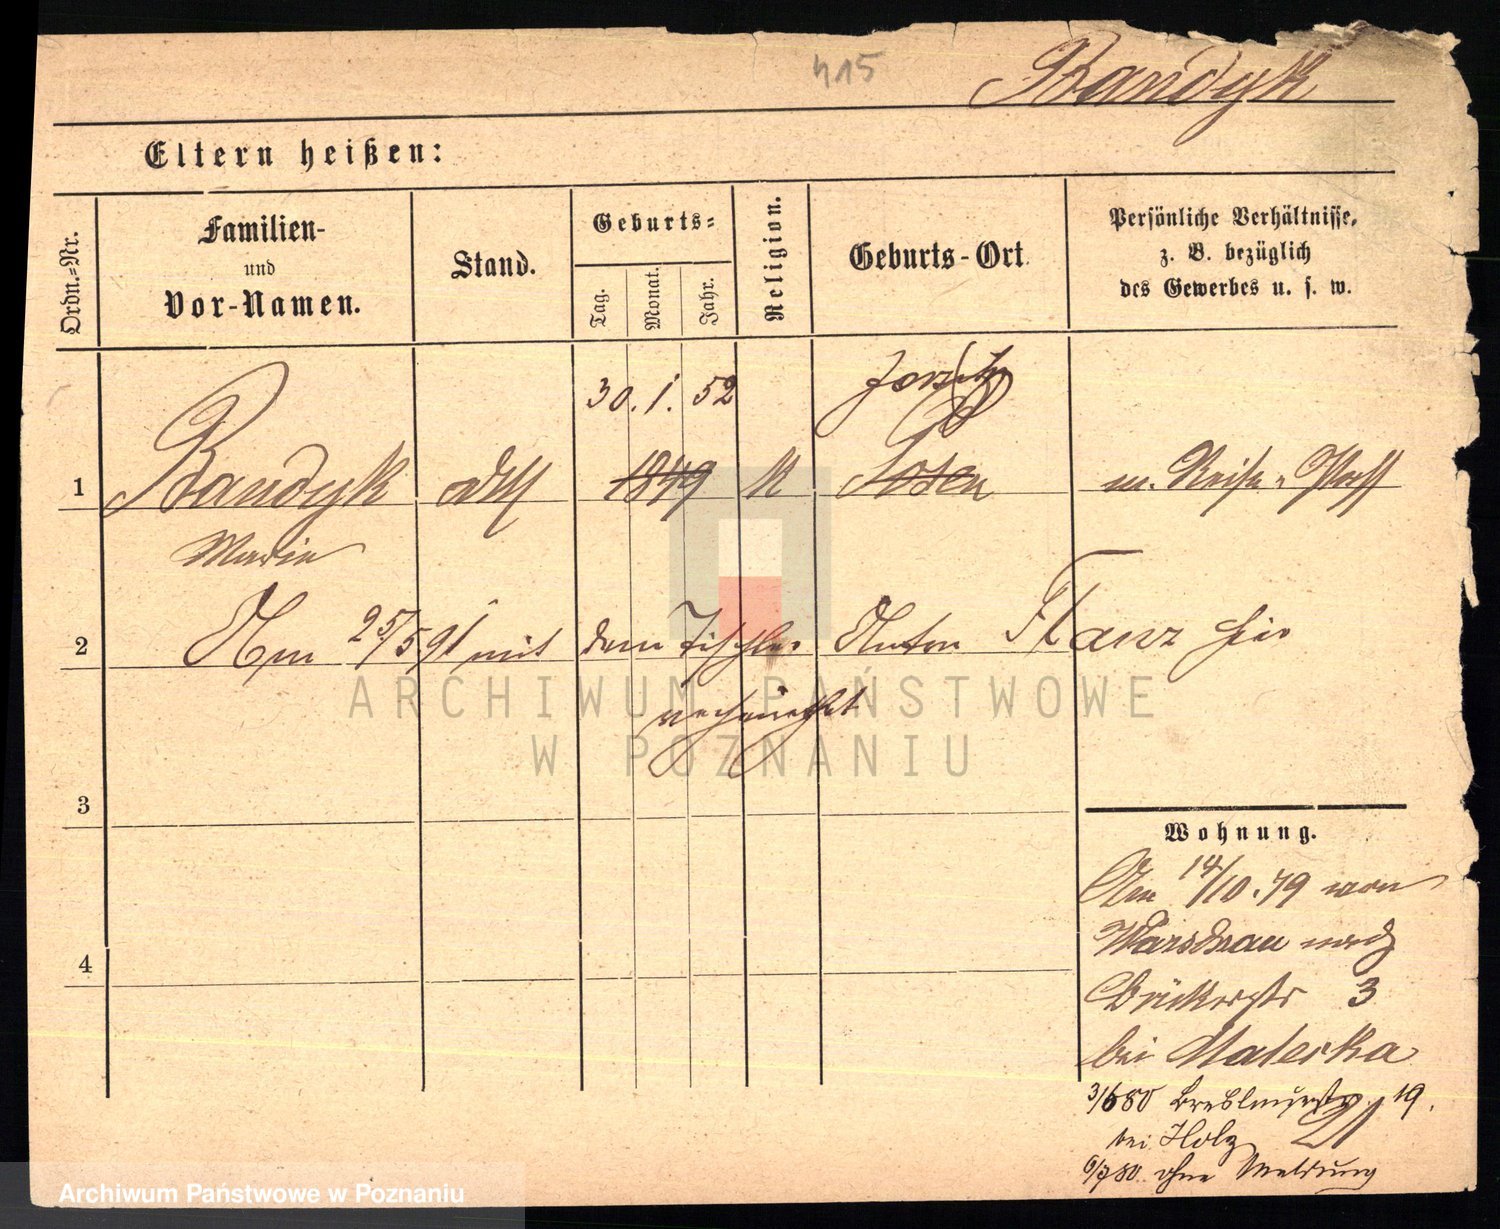 415
Bandyk
Eltern heißen:
Ordn.=Nr.
Familien-
und
Vor-Namen.
Stand.
Geburts=
Tag.
Monat.
Jahr.
Religion.
Geburts-Ort.
Persönliche Verhältnisse,
z. B. bezüglich
des Gewerbes u. s. w.
30. 1. 52
1 Bandyk 1849 k Posen m. Reise-Paß
Marie
2 Am 25/5 91 mit dem Tischler Anton Flanz hier
3
4
Wohnung.
Am 14/10. 79 von
Warschau nach
Bäckerstr 3
bei Maleska
3/6 80 Breslauerstr 19.
bei Holz
6/7 80 ohne Meldung
ARCHIWUM PAŃSTWOWE
W POZNANIU
Archiwum Państwowe w Poznaniu